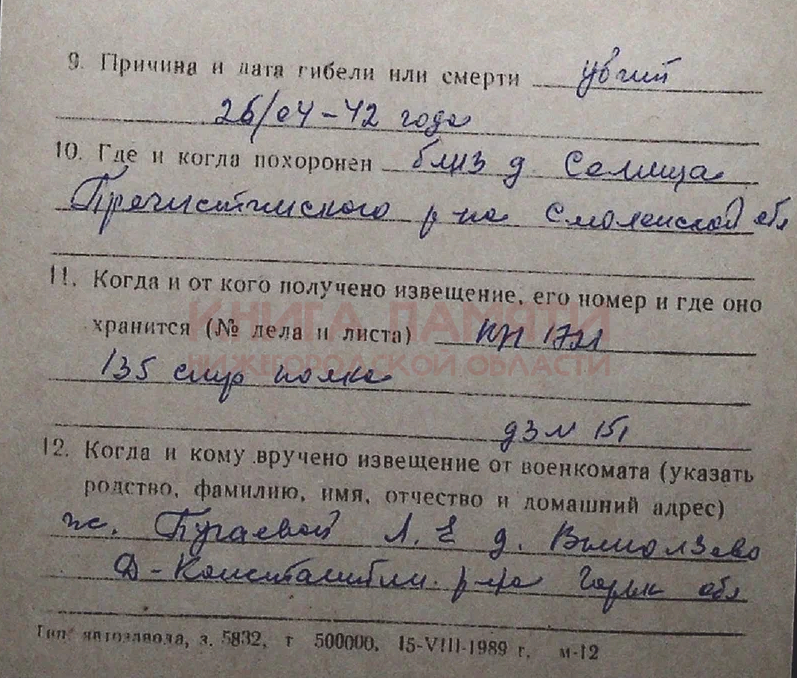 9. Причина и дата гибели или смерти убит
26/04-42 года
10. Где и когда похоронен близ д. Селища
Пречистинского р-на Смоленской обл
11. Когда и от кого получено извещение, его номер и где оно
КНИГА ПАМЯТИ
хранится (№ дела и листа) вх 1721
НИЖЕГОРОДСКОЙ ОБЛАСТИ
135 стр полка
д3 л 151
12. Когда и кому вручено извещение от военкомата (указать
родство, фамилию, имя, отчество и домашний адрес)
ж. Пугаевой Л. Е д. Выползово
Д-Константин. р-на Горьк обл
Тип. автозавода, з. 5832, т 500000, 15-VIII-1989 г, м-12